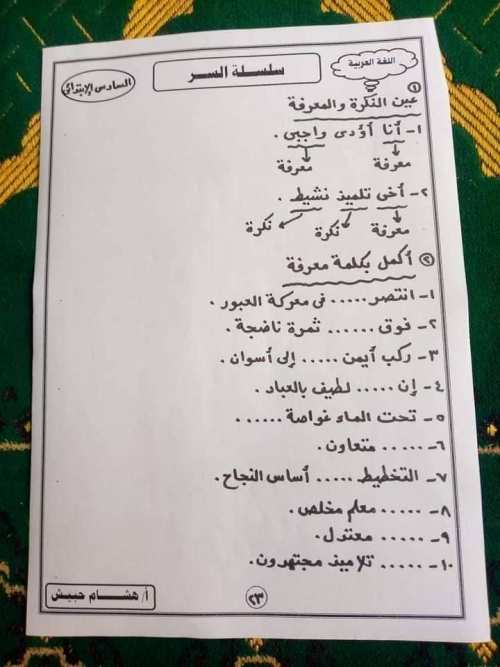 اللغة العربية
سلسلة السر
السادس الابتدائي
① عين النكرة والمعرفة
١- أنا أؤدى واجبى .
معرفة معرفة
٢- أخى تلميذ نشيط .
معرفة نكرة نكرة
② أكمل بكلمة معرفة
١- انتصر ..... فى معركة العبور .
٢- فوق ...... ثمرة ناضجة .
٣- ركب أيمن ..... إلى أسوان .
٤- إن ..... لطيف بالعباد .
٥- تحت الماء غواصة ......
٦- ..... متعاون .
٧- التخطيط ..... أساس النجاح .
٨- ..... معلم مخلص .
٩- ..... معتدل .
١٠- ..... تلاميذ مجتهدون .
أ/ هشام حبيش
٢٣